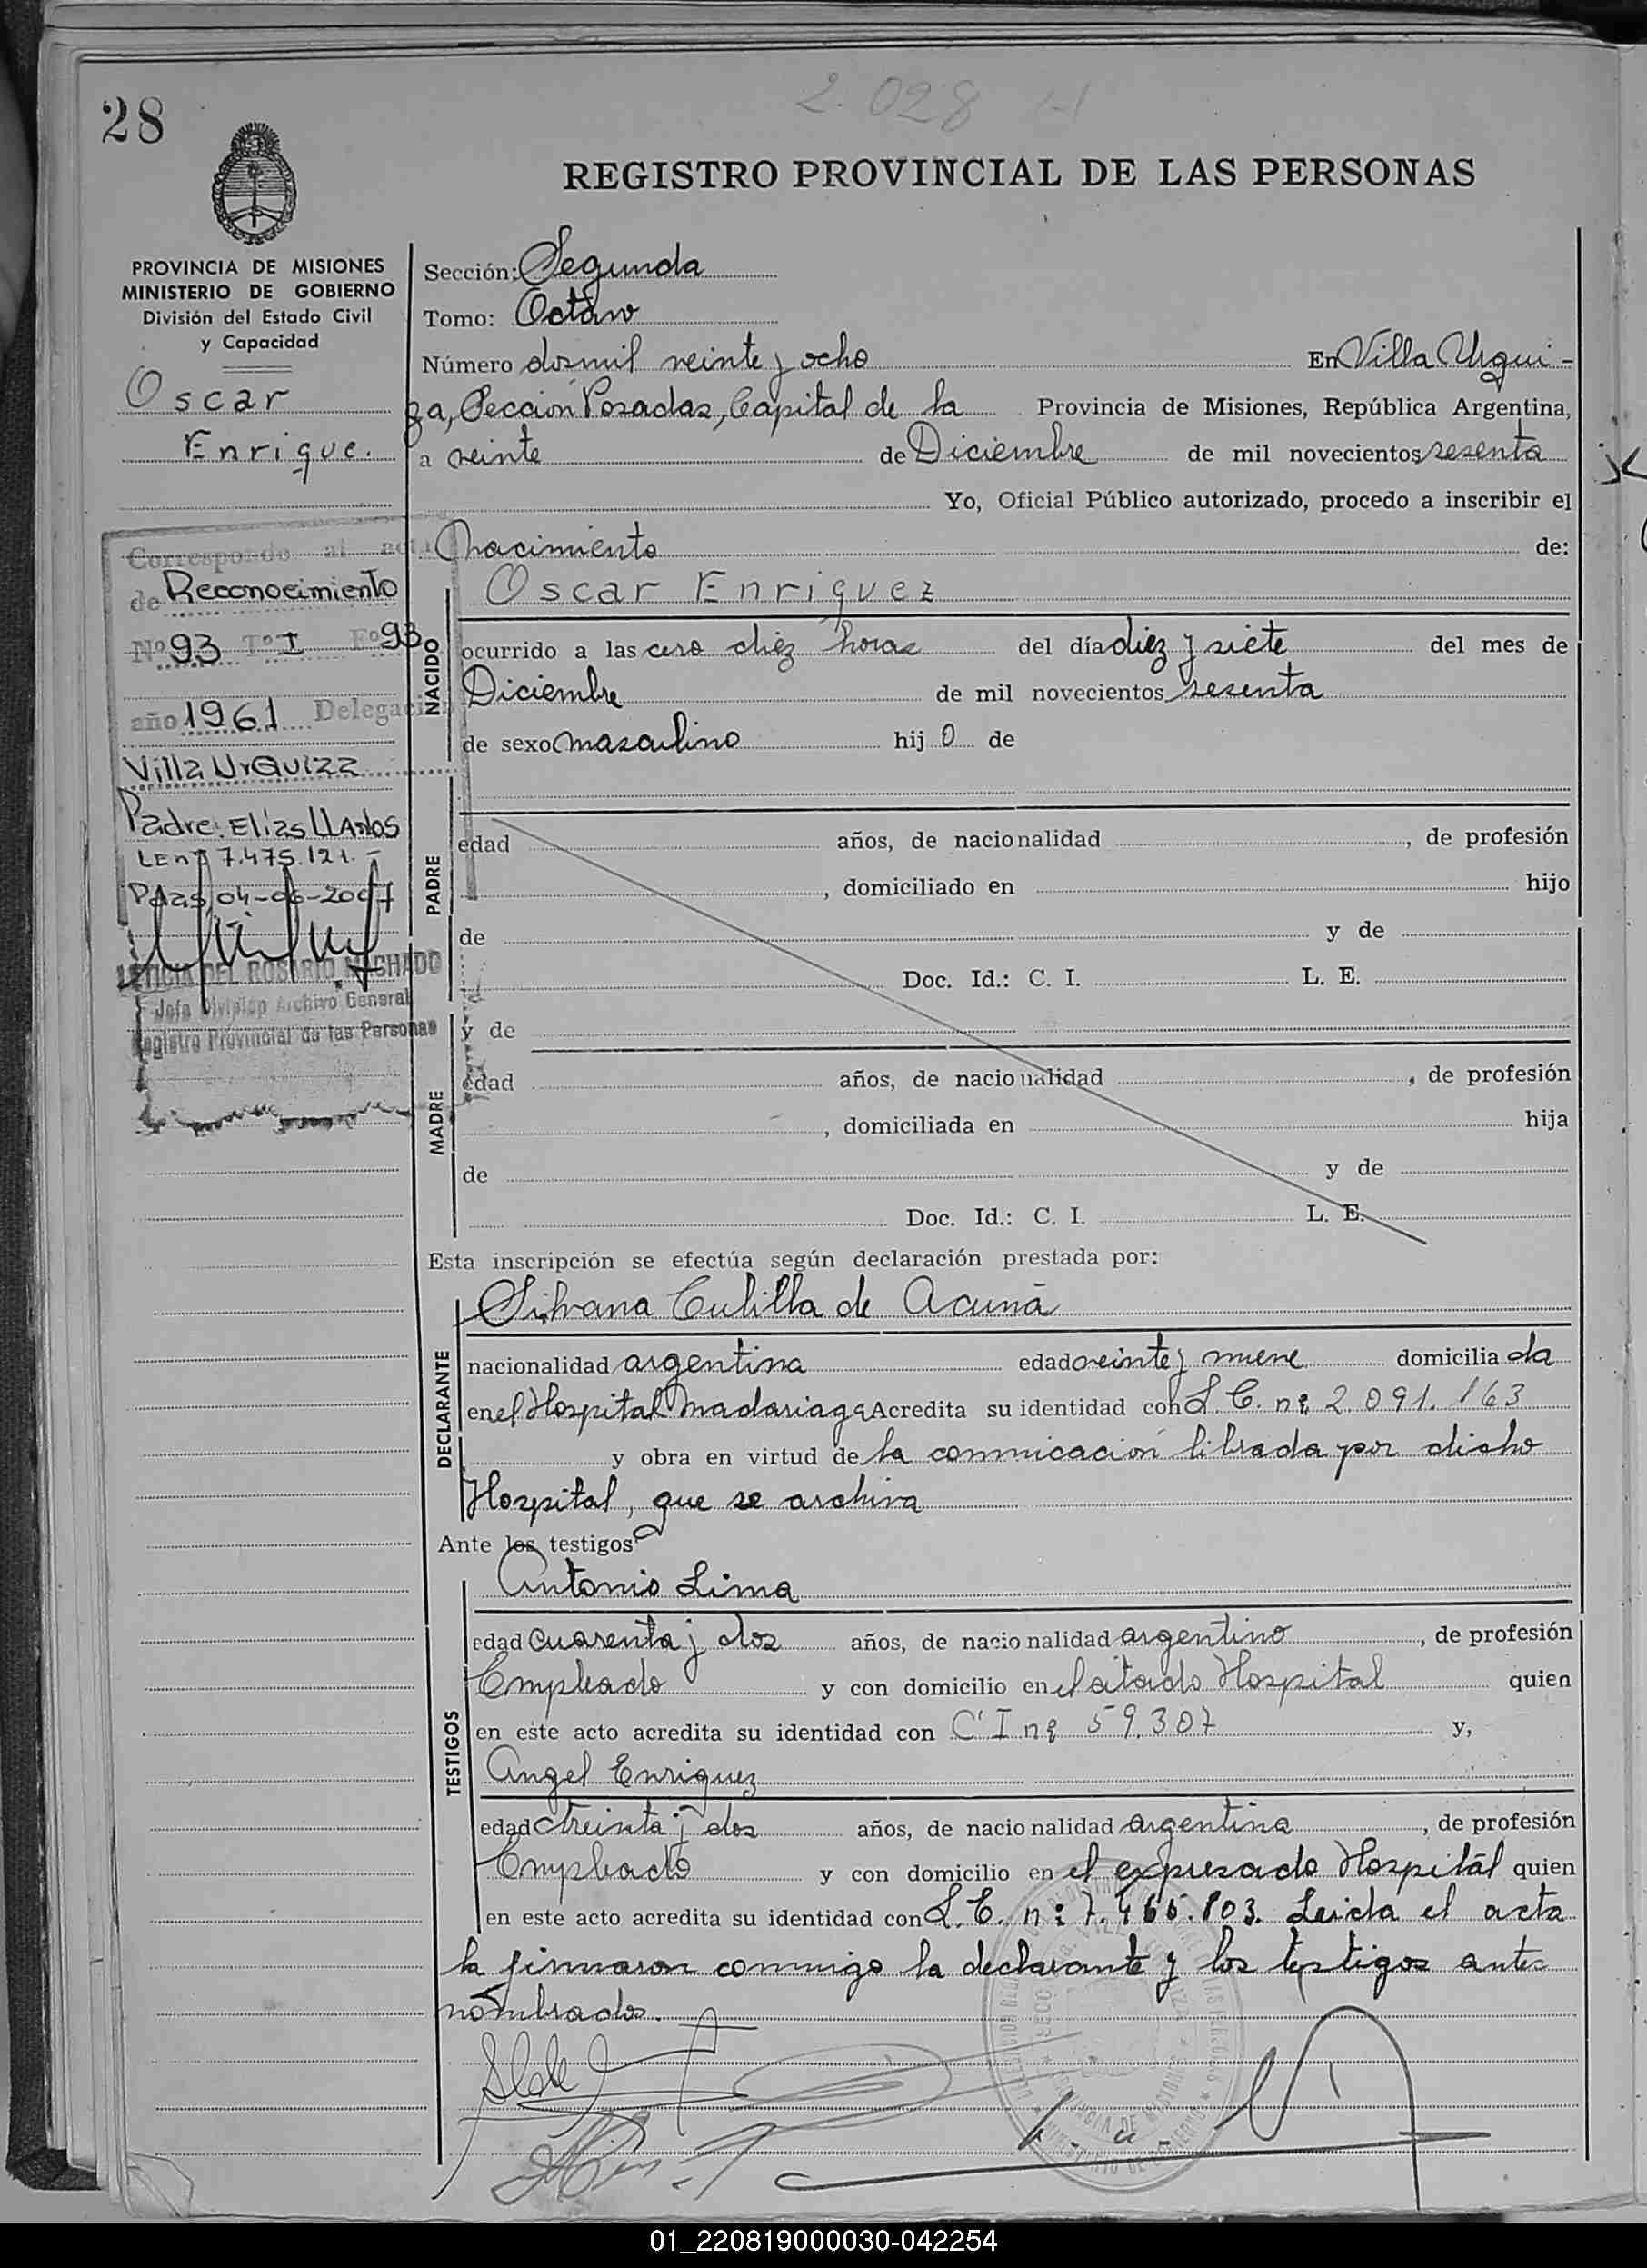 28
2.028
REGISTRO PROVINCIAL DE LAS PERSONAS
PROVINCIA DE MISIONES
MINISTERIO DE GOBIERNO
División del Estado Civil
y Capacidad
Oscar
Enrique.
Corresponde al acta
de Reconocimiento
Nº 93 Tº I Fº 93
año 1961 Delegación
Villa Urquiza
Padre: Elias LLanos
LE nº 7.475.121.-
Pdas, 04-06-2007
LETICIA DEL ROSARIO MACHADO
Jefa División Archivo General
Registro Provincial de las Personas
Sección: Segunda
Tomo: Octavo
Número dosmil veinte y ocho En Villa Urqui-
za, Sección Posadas, Capital de la Provincia de Misiones, República Argentina,
a veinte de Diciembre de mil novecientos sesenta
Yo, Oficial Público autorizado, procedo a inscribir el
nacimiento de:
Oscar Enriquez
NACIDO
ocurrido a las cero diez horas del día diez y siete del mes de
Diciembre de mil novecientos sesenta
de sexo masculino hijo de
PADRE
edad años, de nacionalidad , de profesión
, domiciliado en hijo
de y de
Doc. Id.: C. I. L. E.
y de
MADRE
edad años, de nacionalidad , de profesión
, domiciliada en hija
de y de
Doc. Id.: C. I. L. E.
Esta inscripción se efectúa según declaración prestada por:
Silvana Cubilla de Acuña
DECLARANTE
nacionalidad argentina edad veinte y nueve domiciliada
en el Hospital Madariaga Acredita su identidad con L. C. nº 2.091.163
y obra en virtud de la comnicación librada por dicho
Hospital, que se archiva
Ante los testigos
Antonio Lima
TESTIGOS
edad cuarenta y dos años, de nacionalidad argentino , de profesión
Empleado y con domicilio en el citado Hospital quien
en este acto acredita su identidad con C I nº 59.307 y,
Angel Enriquez
edad treinta y dos años, de nacionalidad argentina , de profesión
Empleado y con domicilio en el expresado Hospital quien
en este acto acredita su identidad con L. E. nº 7.466.803. Leida el acta
la firmaron conmigo la declarante y los testigos antes
nombrados.
01_220819000030-042254